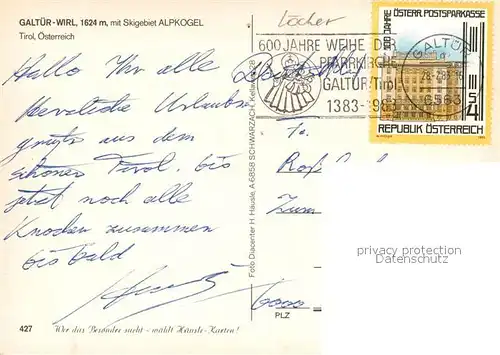 GALTÜR-WIRL, 1624 m, mit Skigebiet ALPKOGEL
Tirol, Österreich
Löcher
600 JAHRE WEIHE DER
PFARRKIRCHE
GALTÜR/Tirol
1383-1983
100 JAHRE ÖSTERR. POSTSPARKASSE
S 4
REPUBLIK ÖSTERREICH
GALTÜR
6563
Hallo Ihr alle
Urlaubs
grüße aus dem
schönen Tirol, bis
jetzt noch alle
Knochen zusammen
bis bald
Foto Diacenter H. Häusle, A 6858 SCHWARZACH
privacy protection
Datenschutz
6000
PLZ
427
Wer das Besondre sucht - wählt Häusle-Karten!